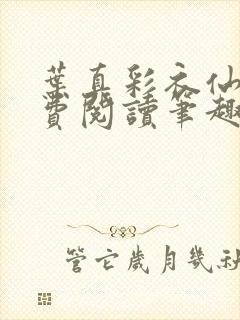 葉真彩衣仙
費閱讀筆趣
管它歲月幾